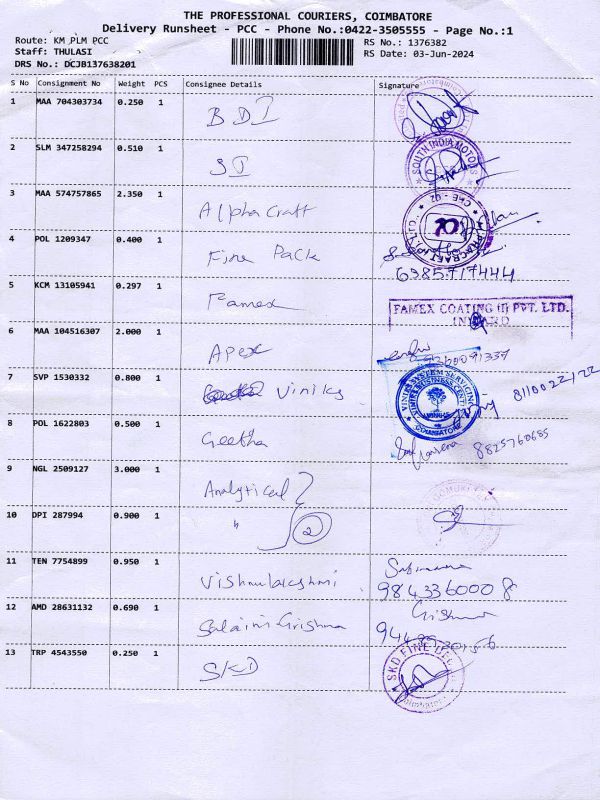 THE PROFESSIONAL COURIERS, COIMBATORE
Delivery Runsheet - PCC - Phone No.:0422-3505555 - Page No.:1
Route: KM PLM PCC RS No.: 1376382
Staff: THULASI RS Date: 03-Jun-2024
DRS No.: DCJB137638201
S No Consignment No Weight PCS Consignee Details Signature
1 MAA 704303734 0.250 1 BDI
2 SLM 347258294 0.510 1 SI SOUTH INDIA MOTORS
3 MAA 574757865 2.350 1 Alpha Craft
4 POL 1209347 0.400 1 Fine Pack 6385717444
5 KCM 13105941 0.297 1 Famex FAMEX COATING (I) PVT. LTD.
INWARD
6 MAA 104516307 2.000 1 Apex
7 SVP 1530332 0.800 1 Viniks VINIKS SYSTEM SERVICING COIMBATORE
8 POL 1622803 0.500 1 Geetha 8825760685
9 NGL 2509127 3.000 1 Analytical
10 DPI 287994 0.900 1 " 2
11 TEN 7754899 0.950 1 Vishnulakshmi 9843360008
12 AMD 28631132 0.690 1 Krishna
13 TRP 4543550 0.250 1 SKD SKD FINE